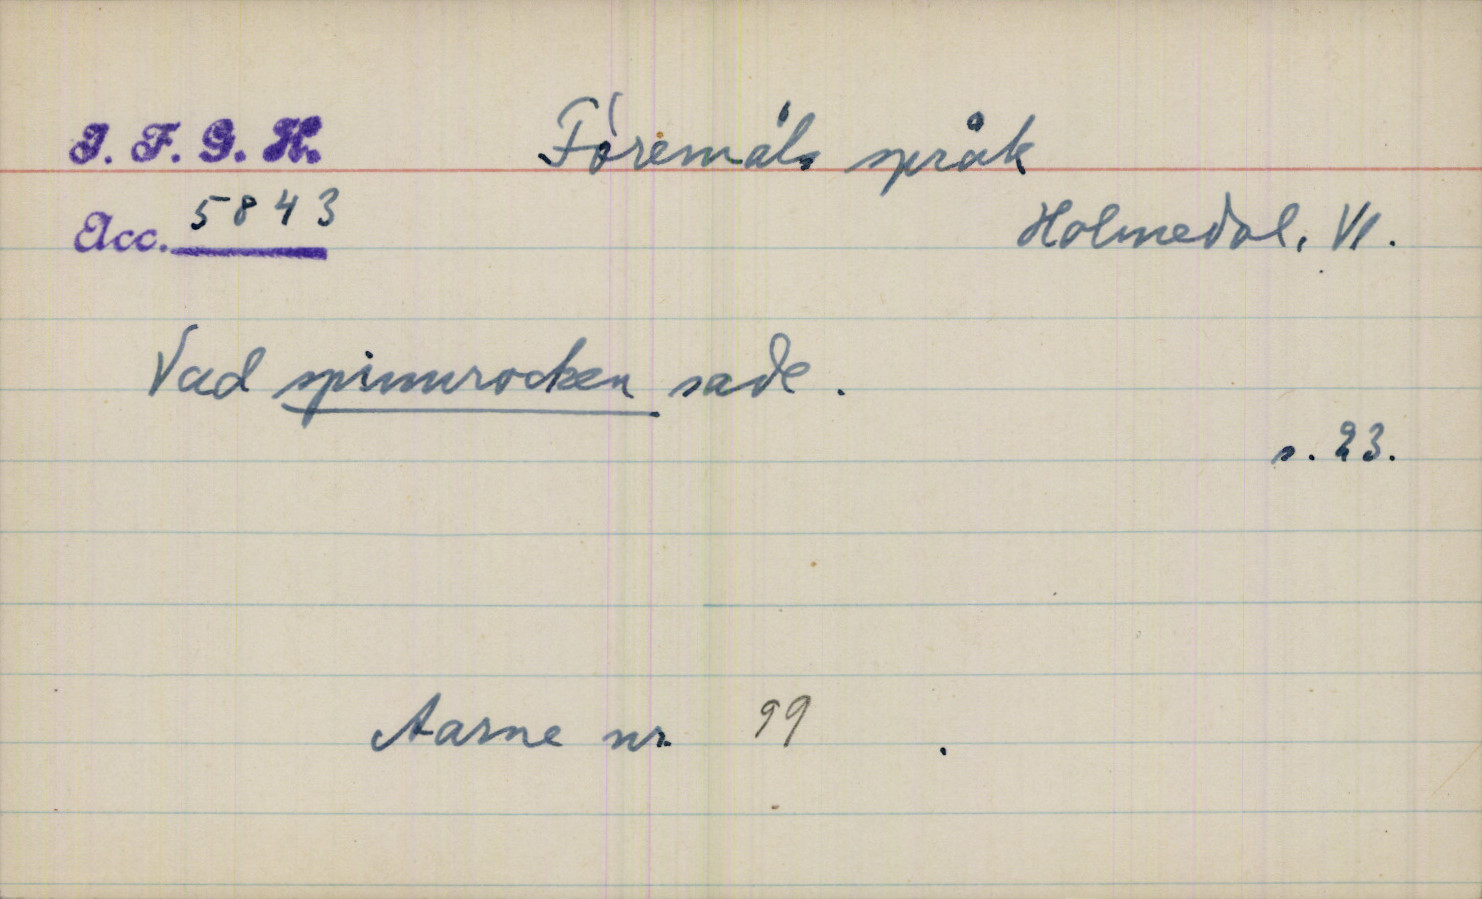 I. F. G. H. Föremåls språk
Acc. 5843 Holmedal, Vl.
Vad spinnrocken sade.
s. 23.
Aarne nr. 99 .